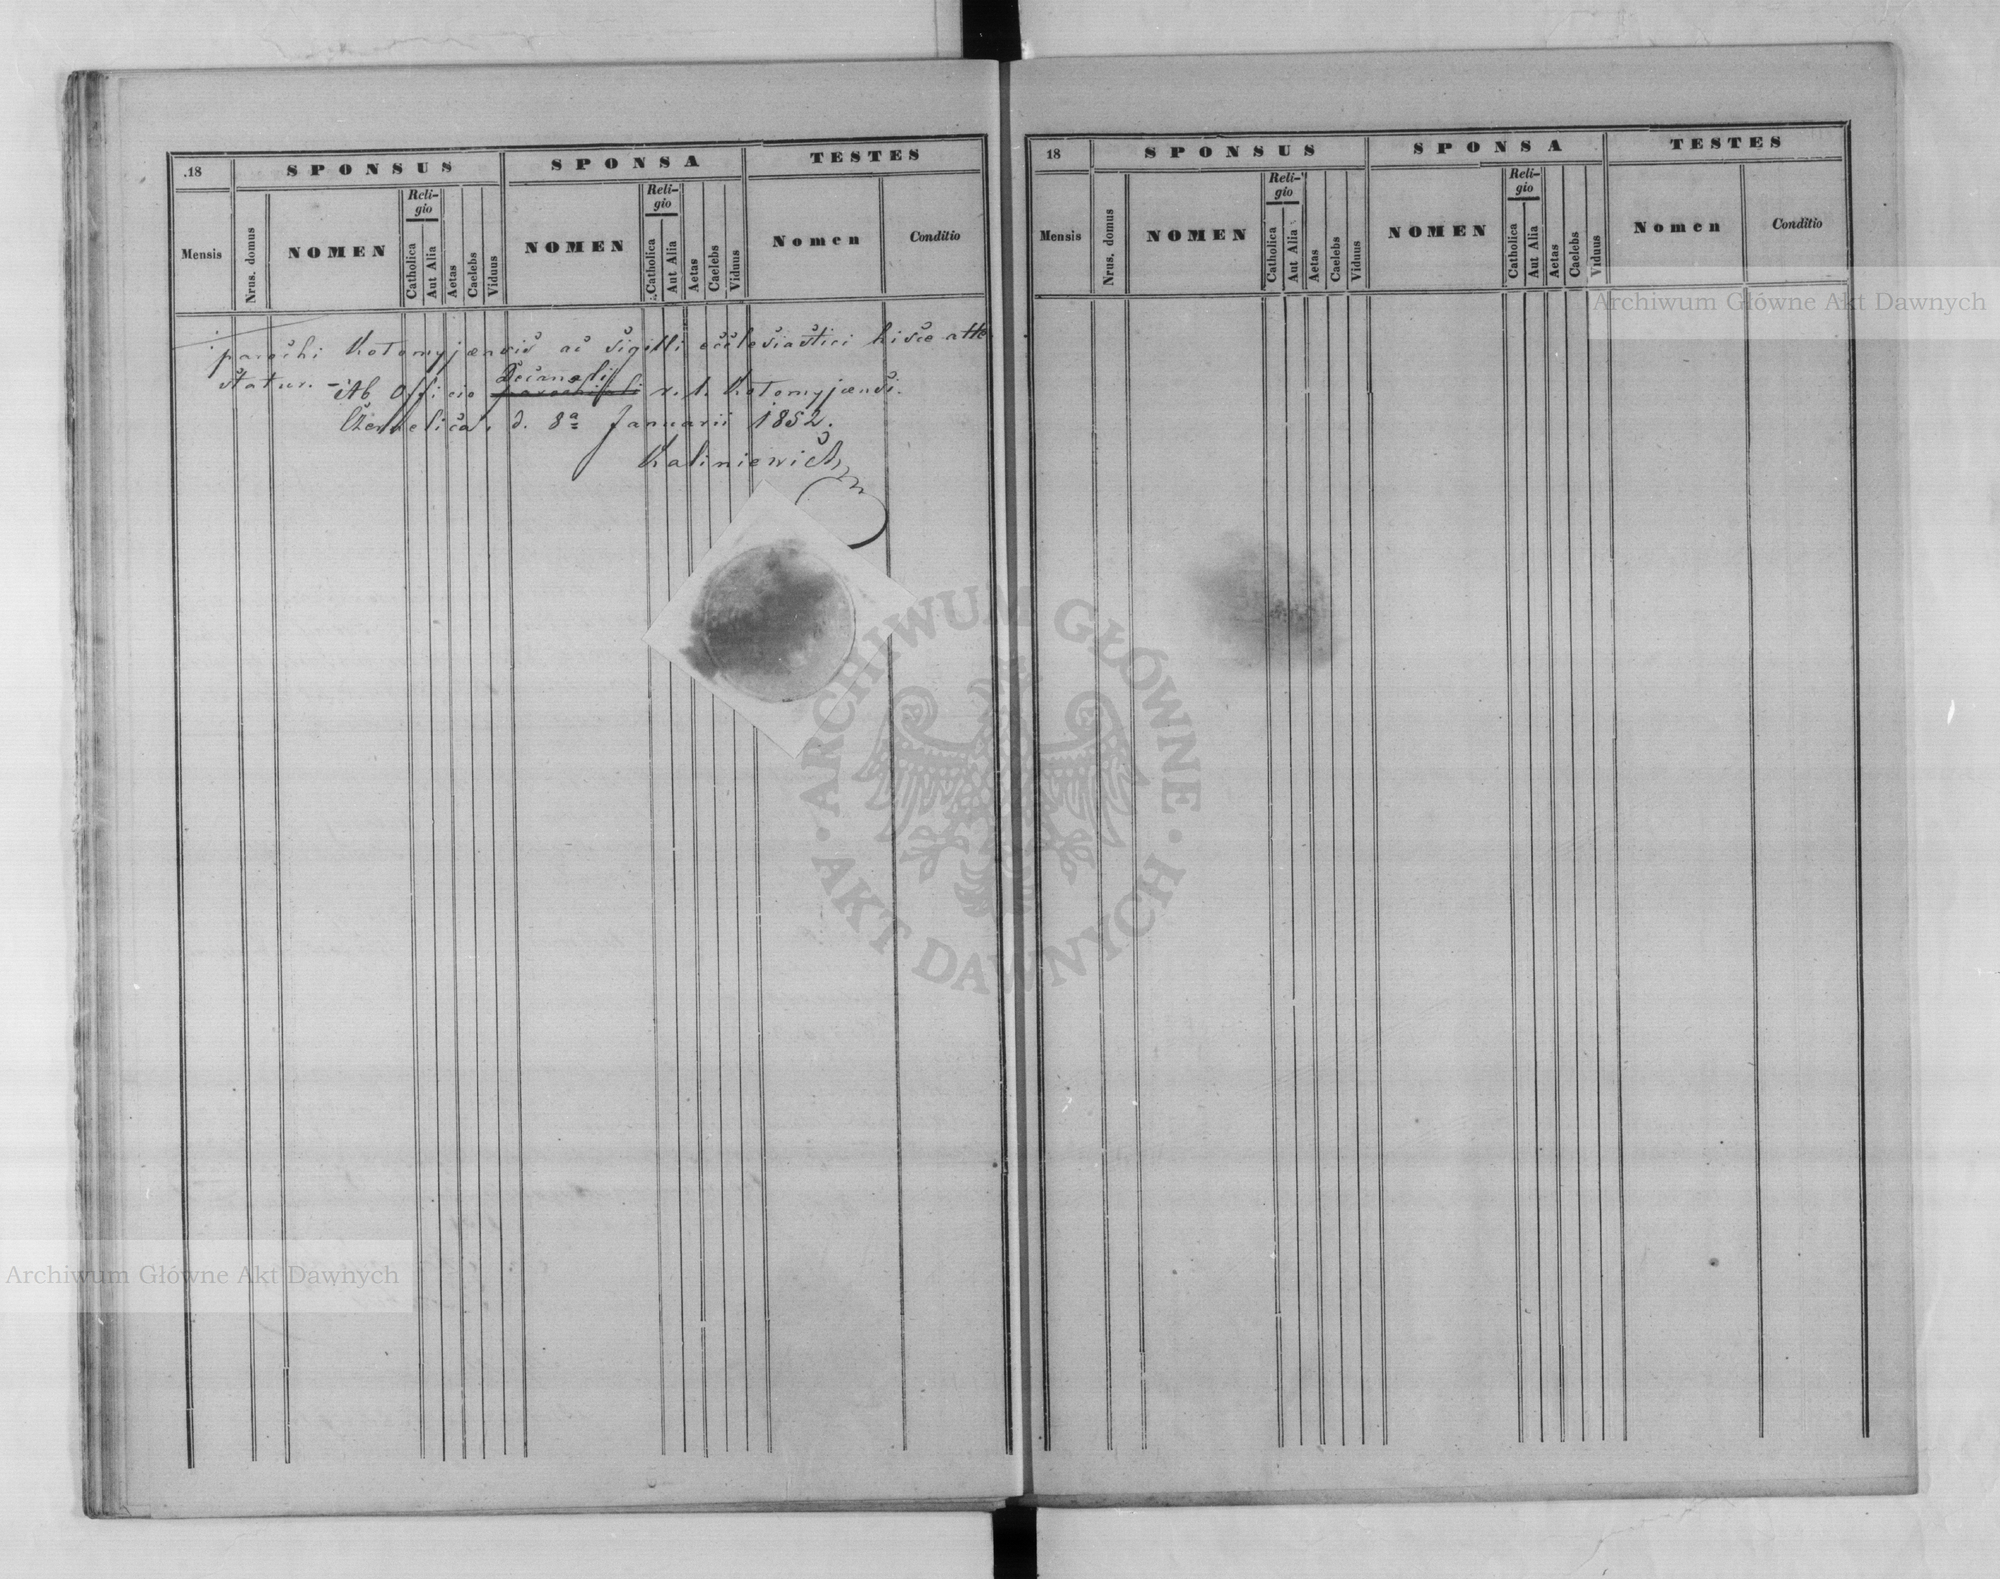 .18
SPONSUS
SPONSA
TESTES
Mensis
Nrus. domus
NOMEN
Reli-
gio
Catholica
Aut Alia
Aetas
Caelebs
Viduus
NOMEN
Reli-
gio
Catholica
Aut Alia
Aetas
Caelebs
Viduus
Nomen
Conditio
parochi Kolomyjensis ac sigilli ecclesiastici hisce atte
statur. - Ab Officio Decanali r. l. Kolomyjensi.
Czernelica, d. 8ª Januarii 1852.
Kaliniewicz
18
SPONSUS
SPONSA
TESTES
Mensis
Nrus. domus
NOMEN
Reli-
gio
Catholica
Aut Alia
Aetas
Caelebs
Viduus
NOMEN
Reli-
gio
Catholica
Aut Alia
Aetas
Caelebs
Viduus
Nomen
Conditio
Archiwum Główne Akt Dawnych
ARCHIWUM GŁÓWNE
AKT DAWNYCH
Archiwum Główne Akt Dawnych